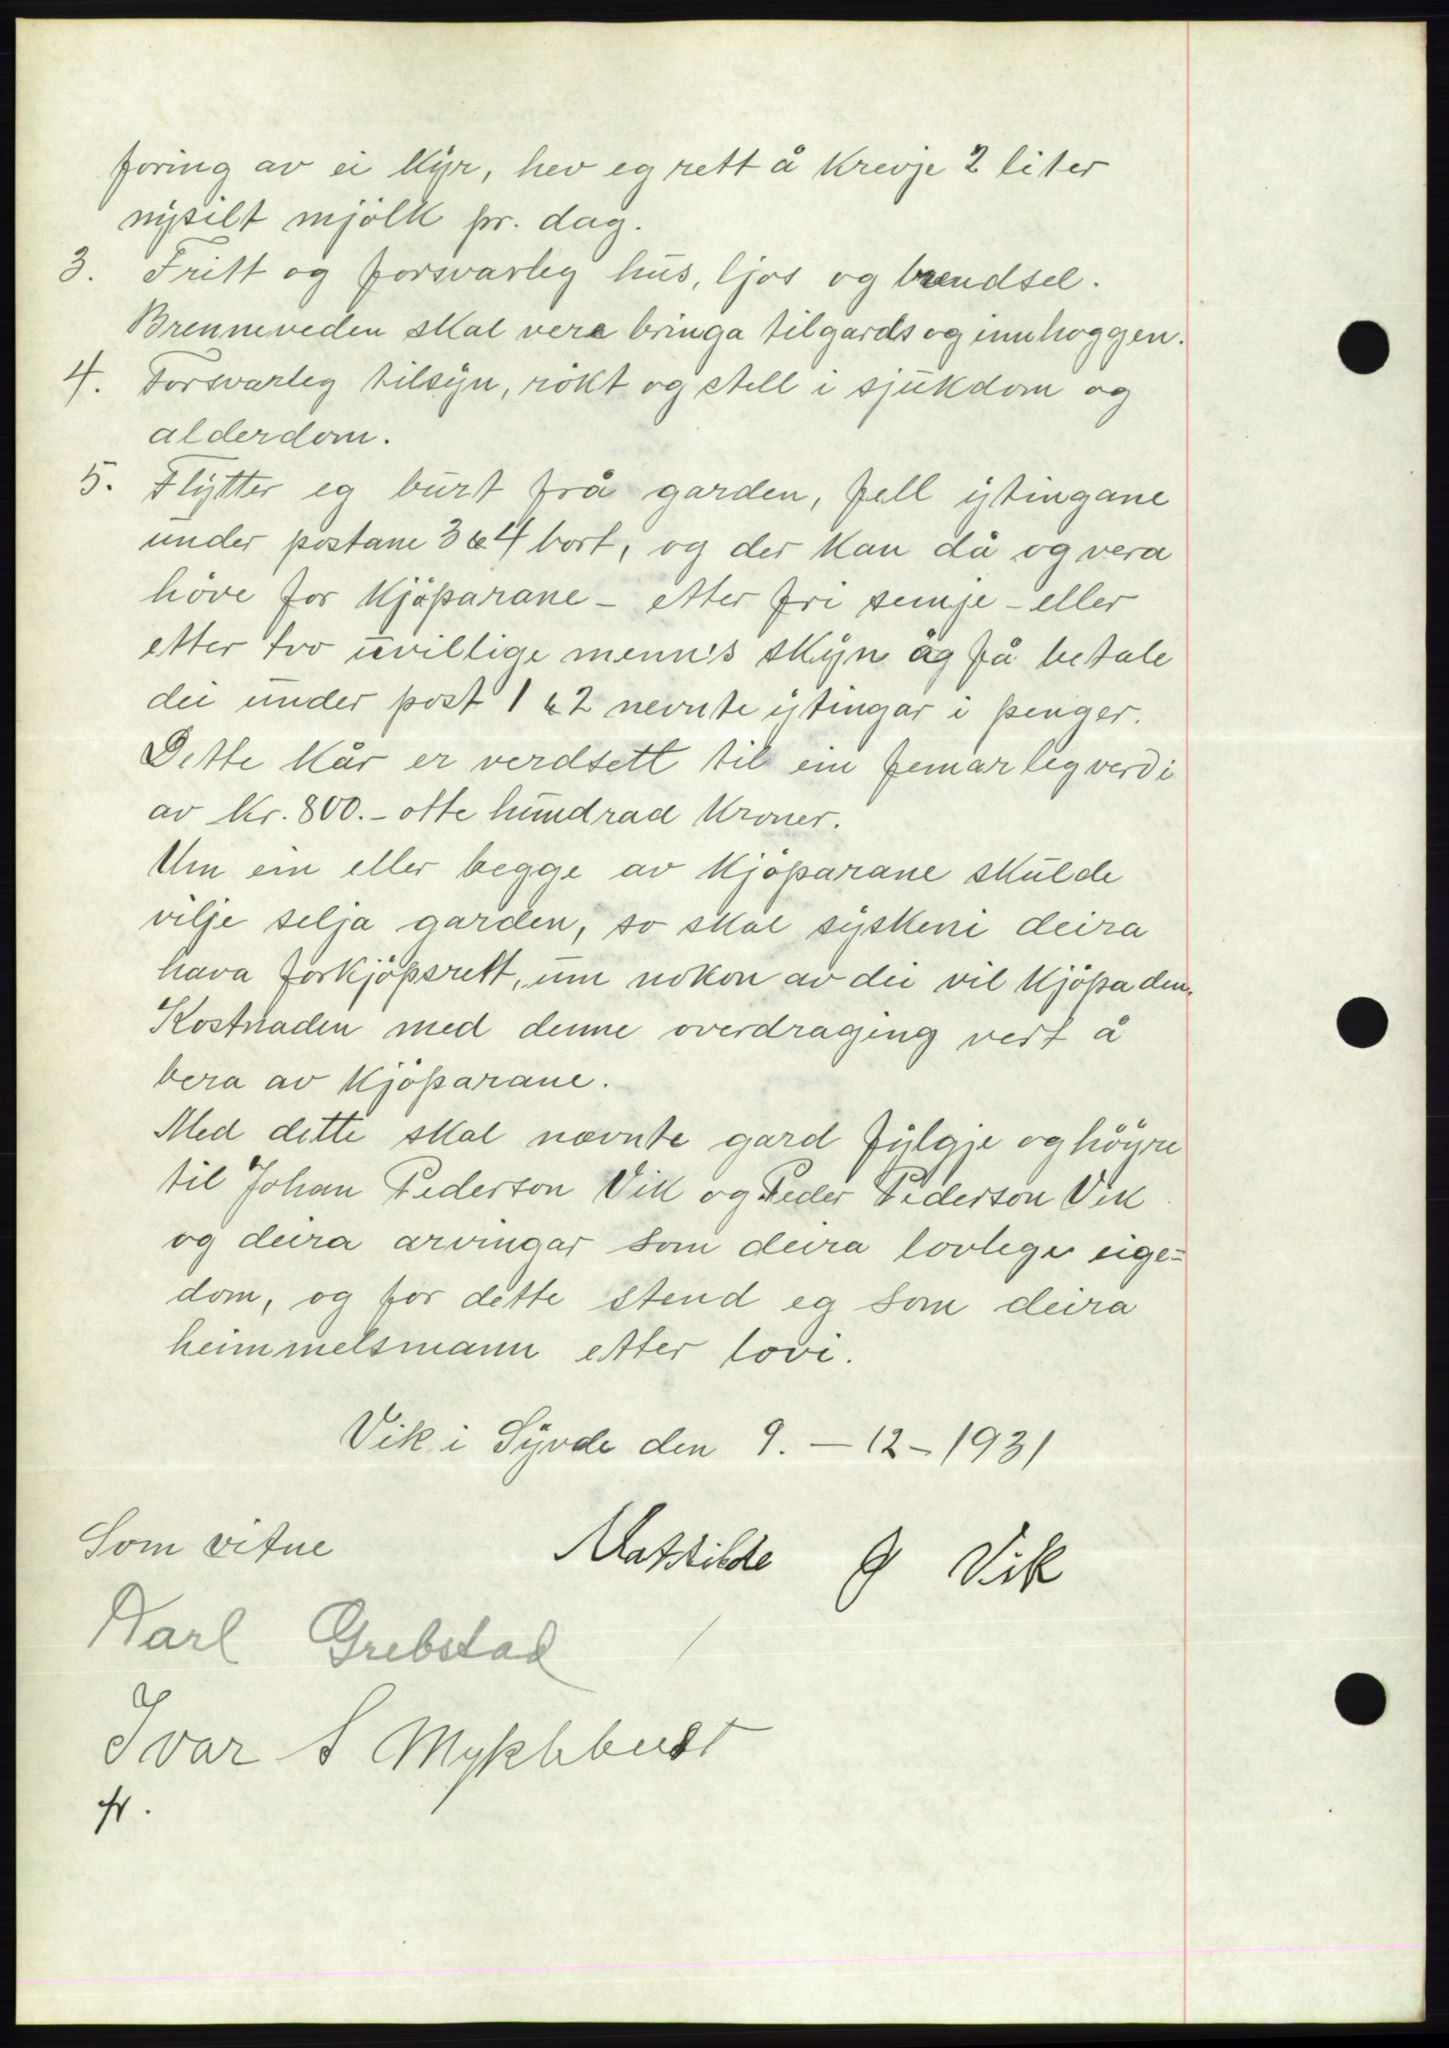 foring av ei kyr, hev eg rett å krevje 2 liter
nysilt mjölk pr. dag.
3. Fritt og forsvarleg hus, ljos og brendsel.
Brenneveden skal vera bringa tilgards og innhoggen.
4. Forsvarleg tilsyn, rökt og stell i sjukdom og
alderdom.
5. Flytter eg burt frå garden, fell ytingane
under postane 3 & 4 bort, og der kan då og vera
höve for kjöparane - etter fri semje - eller
etter tvo uvillige menn's skyn åg få betale
dei under post 1 & 2 nevnte ytingar i penger.
Dette kår er verdsett til ein femårleg verdi
av kr. 800.- otte hundrad kroner.
Um ein eller begge av kjöparane skulde
vilje selja garden, so skal syskeni deira
hava forkjöpsrett, um nokon av dei vil kjöpa den.
Kostnaden med denne overdraging vert å
bera av kjöparane.
Med dette skal nævnte gard fylgje og höyre
til Johan Pederson Vik og Peder Pederson Vik
og deira arvingar som deira lovlege eige=
dom, og for dette stend eg som deira
heimmelsmann etter lovi.
Vik i Syvde den 9. - 12 - 1931
Som vitne
Mathilde J Vik
Karl Grebstad
Ivar S Myklebust